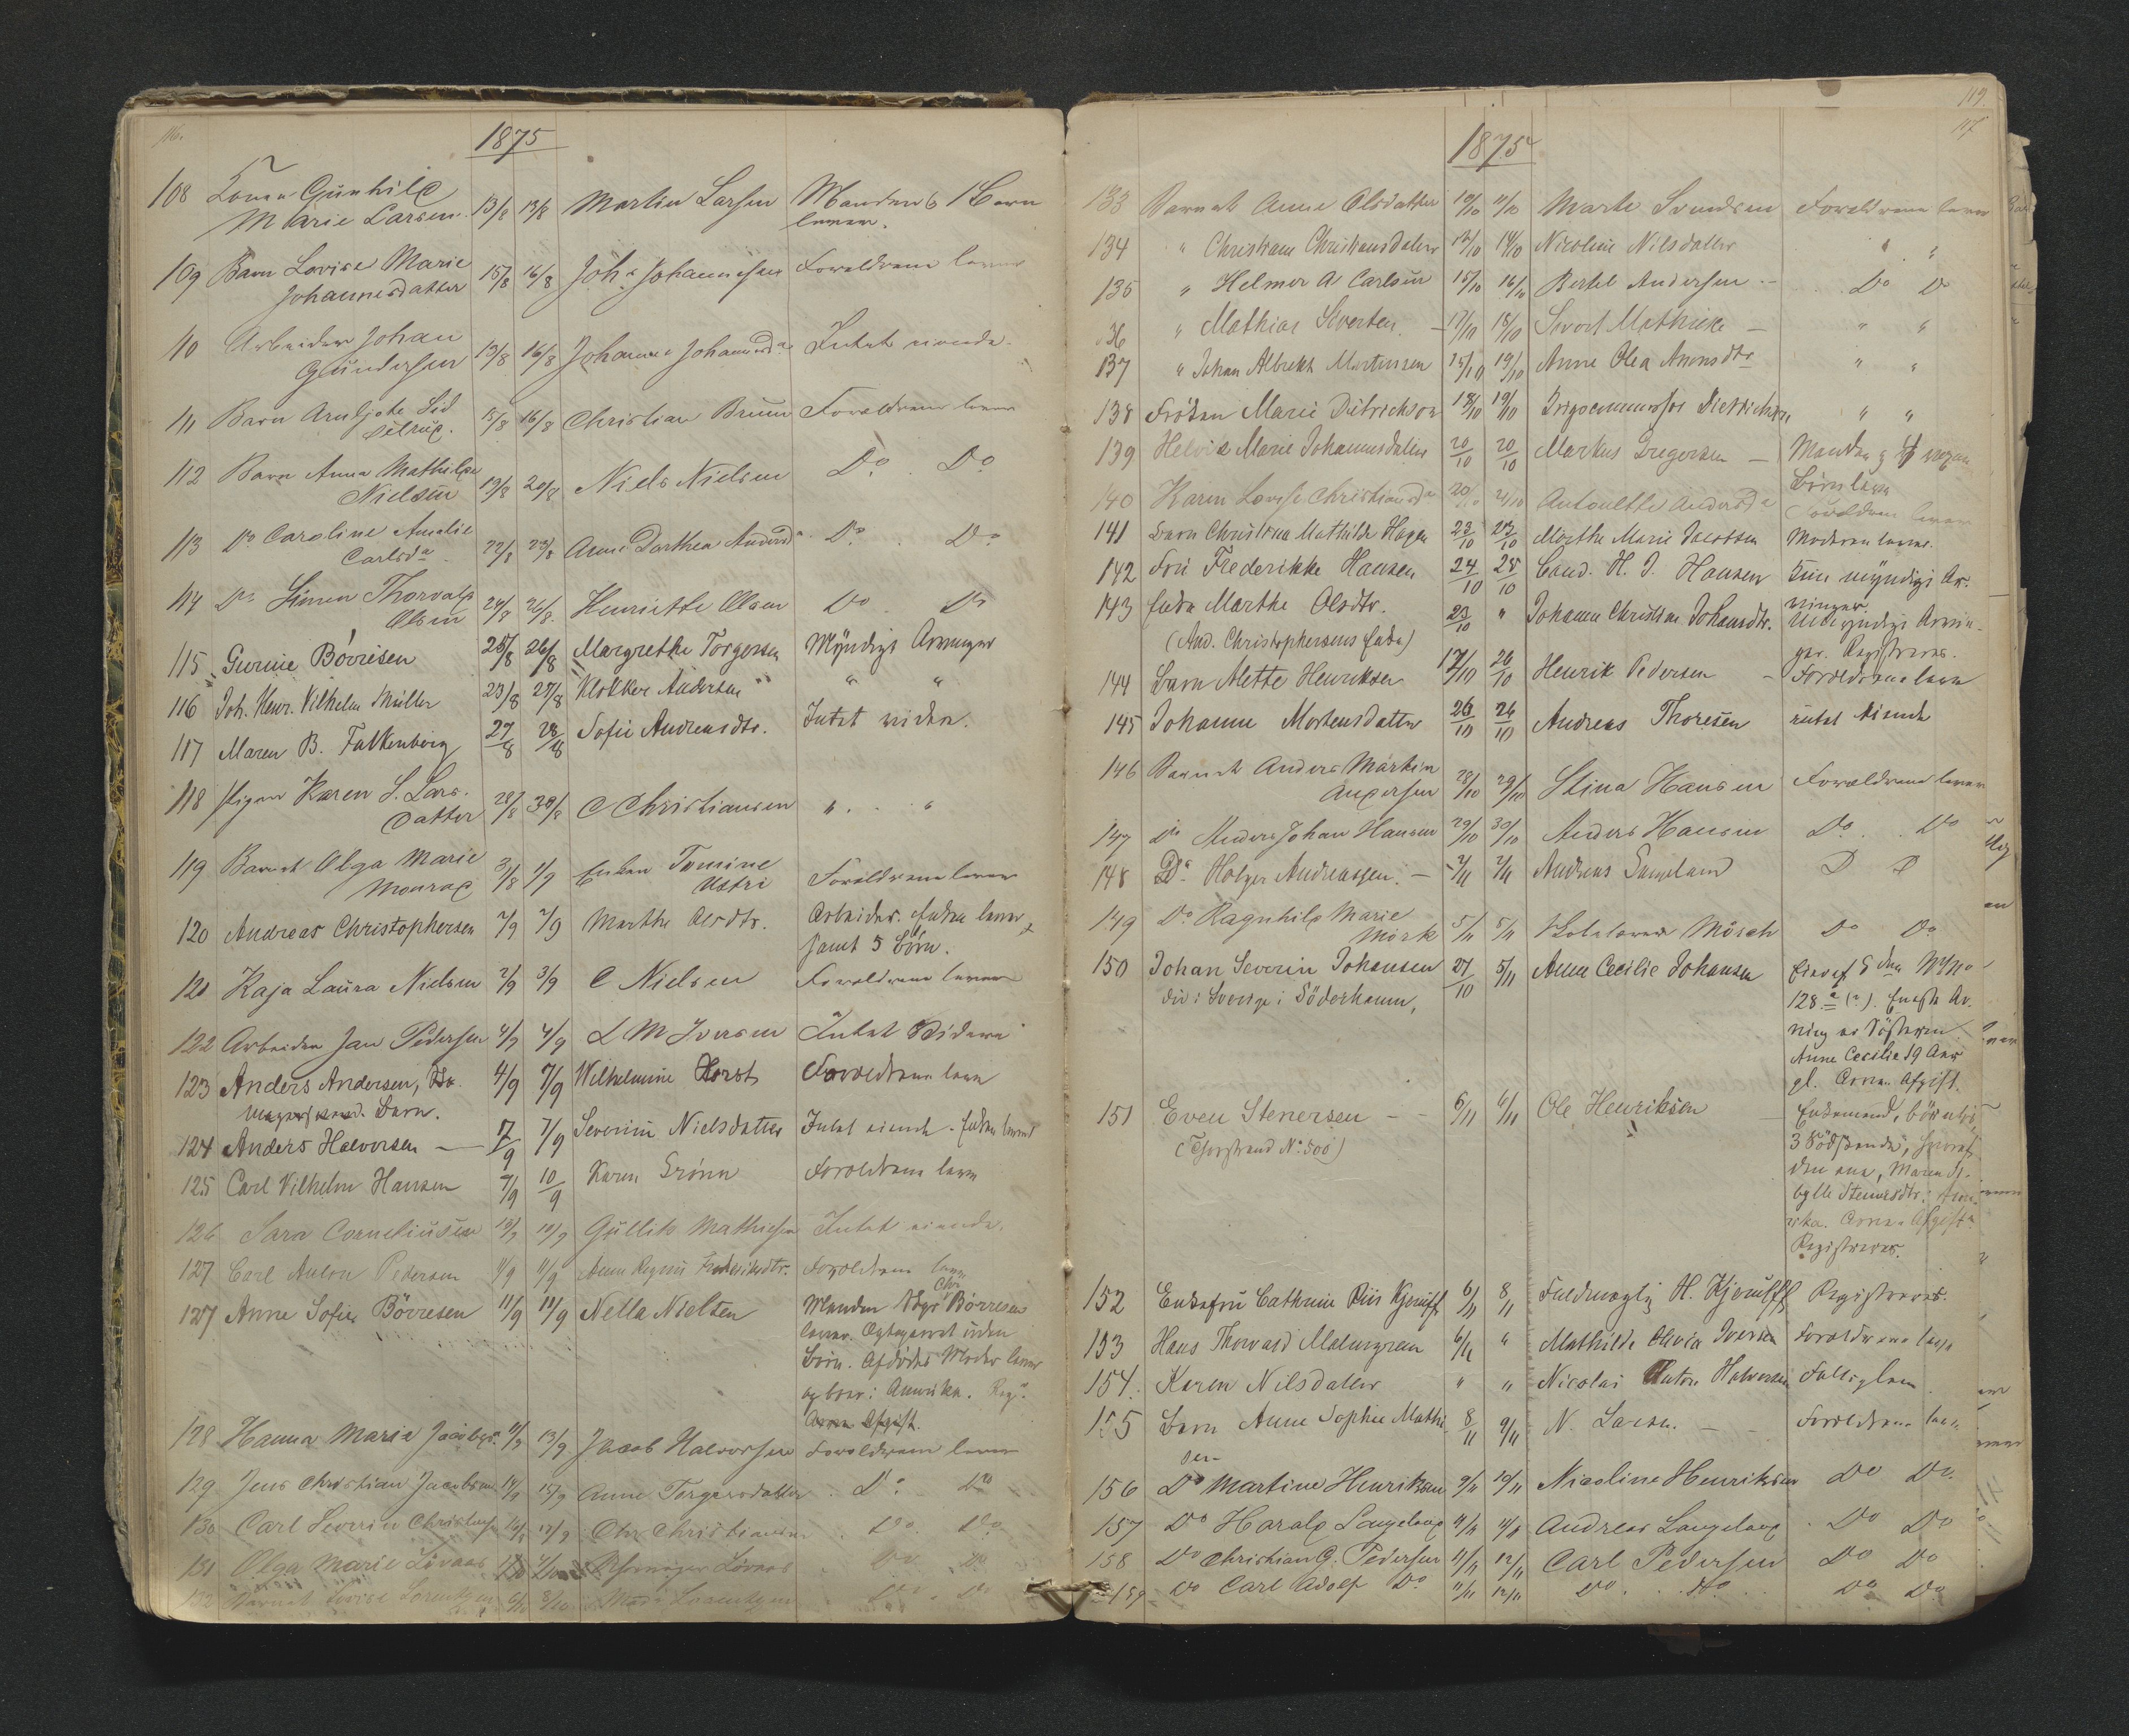 116.
1875
108 Kone Gunhild
Marie Larsen 13/8 13/8 Martin Larsen Manden & 1 Barn
lever.
109 Barn Lovise Marie
Johannesdatter 15/8 16/8 Joh. Johannesen Foreldrene lever
110 Arbeider Johan
Gundersen 13/8 16/8 Johanne Johannesda Intet eiende.
111 Barn
15/8 16/8 Christian Bruun Foreldrene lever
112 Barn Anna Mathilde
Nielsen 19/8 20/8 Niels Nielsen Do Do
113 Do Caroline Amalie
Carlsda 22/8 23/8 Anne Dorthea Andersda Do Do
114 Do Simen Thorvald
Olsen 24/8 26/8 Henriette Olsen Do Do
115 Gurine Börresen 25/8 26/8 Margrethe Torgersen Myndige Arvinger
116 Joh. Henr. Vilhelm Müller 23/8 27/8 Klokker Andersen " "
117 Maren B. Falkenberg 27/8 28/8 Sofie Andreasdtr. Intet videre.
118 Pigen Karen S. Lars-
datter 28/8 30/8 C Christiansen " "
119 Barnet Olga Marie
Monrad 31/8 1/9 Enken Tomine
Foreldrene lever
120 Andreas Christophersen 2/9 2/9 Marthe Olsdtr. Arbeider. Enken lever
samt 5 Börn.
121 Kaja Laura Nielsen 2/9 3/9 C Nielsen Foreldrene lever
122 Arbeider Jan Pedersen 4/9 4/9 L M Iversen Intet
123 Anders Andersen, 4/9 7/9 Wilhelmine Horst Foreldrene lever
Barn.
124 Anders Halvorsen — 7/9 7/9 Severine Nielsdatter Intet eiende. Enken lever
125 Carl Vilhelm Hansen 7/9 10/9 Karen Grönn Foreldrene lever
126 Sara Corneliusen 10/9 10/9 Gullik Mathiesen Intet eiende.
127 Carl Anton Pedersen 11/9 11/9 Anne Regine Frederiksdtr. Foreldrene lever
127 Anne Sofie Börresen 11/9 12/9 Nella Nielsen Manden Chr Börresen
lever. Egteparret uden
Börn. Afdödes Moder lever
og boer i Amerika. Reg.
Arve Afgift.
128 Hanna Maria Jacobs. 11/9 13/9 Jacob Halvorsen Foreldrene lever
129 Jens Christian Jacobsen 14/9 15/9 Anne Torgersdatter Do Do
130 Carl Severin Christensen 16/9 17/9 Chr Christiansen Do Do
131 Olga Marie Lövaas Lövaas Do Do
132 Barnet Lovise Lorentzen 6/10 8/10 Lorentzen Do Do
119
117
1875
133 Barnet Anne Olsdatter 10/10 11/10 Marte Svendsen Foreldrene lever
134 " Christiane Christensdatter 13/10 14/10 Nicoline Nilsdatter " "
135 " Helmer A Carlsen 15/10 16/10 Bertel Andersen - Do Do
36 " Mathias Siverten — 17/10 18/10 Sivert Mathiske — " "
137 " Johan Albrekt Mortensen 15/10 19/10 Anne Olea Amonsdtr " "
138 Fröken Marie Dietrichson 18/10 19/10 Dietrichson " "
139 Helvis Marie Johannesdatter 20/10 20/10 Markus Gregersen — Manden & 4
Börn lever
140 Karen Lovise Christiansda 20/10 21/10 Antonette Andersda Foreldrene lever
141 Barn Christina Mathilde Hagen 23/10 25/10 Marthe Marie Jacobsen Moderen lever.
142 Fru Frederikke Hansen 24/10 25/10 Cand. H. J. Hansen Kun myndige Ar-
vinger.
143 Enke Marthe Olsdtr. 23/10 " Johanne Christine Johansdtr. Umyndige Arvin-
(And. Christophersens Enke) ger. Registreres.
144 Barn Alette Henriksen 17/10 26/10 Henrik Pedersen - Foreldrene lever
145 Johanne Mortensdatter 26/10 26/10 Andreas Thoresen intet eiende
146 Barnet Anders Martin
Andersen 28/10 29/10 Stina Hansen Foreldrene lever
147 Do Anders Johan Hansen 29/10 30/10 Anders Hansen Do Do
148 Do Holger Andreassen. — 2/11 2/11 Andreas Do Do
149 Do Ragnhild Marie
Mörk 5/11 5/11 Mörch Do Do
150 Johan Severin Johansen 27/10 5/11 Anne Cecilie Johansen
död i Sverige i Söderhamn, 128 a (?). Eneste Ar-
ving er Sösteren
Anne Cecilie 19 Aar
gl. Arve Afgift.
151 Even Stenersen - - 6/11 6/11 Ole Henriksen Enkemand, börnlös,
(Tjorstrand No 500) 3 Södskende, hvoraf
den ene, Maren
Stenersdtr. i Ame-
rika. Arve Afgift.
Registreres.
152 Enkefru Cathrine Riis Kjerulff 6/11 8/11 Fuldmægtig H. Kjerulff Registreres.
153 Hans Thorvald Malmgreen 6/11 " Mathilde Olivia Iversen Foreldrene lever
154. Karen Nilsdatter " " Nicolai Anton Halvorsen Fattiglem.
155 Barn Anne Sophie Mathi- 8/11 9/11 N. Larsen. - - Foreldrene lever
sen
156 Do Martine Henriksen 9/11 10/11 Nicoline Henriksen Do Do
157 Do Harald Langeland 11/11 11/11 Andreas Langeland Do Do
158 Do Christian G. Pedersen 11/11 12/11 Carl Pedersen Do Do
159 Do Carl Adolf Do 11/11 12/11 Do Do Do Do